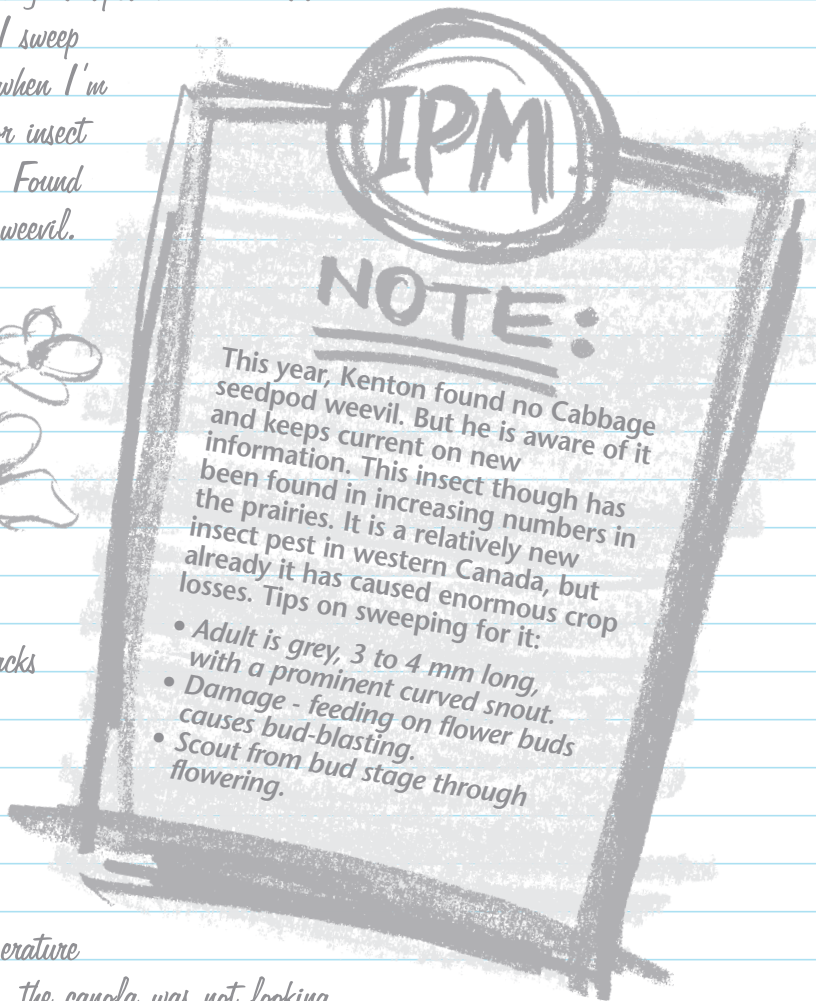 I sweep
when I'm
insect
Found
weevil.
IPM
NOTE:
This year, Kenton found no Cabbage
seedpod weevil. But he is aware of it
and keeps current on new
information. This insect though has
been found in increasing numbers in
the prairies. It is a relatively new
insect pest in western Canada, but
already it has caused enormous crop
losses. Tips on sweeping for it:
• Adult is grey, 3 to 4 mm long,
with a prominent curved snout.
• Damage - feeding on flower buds
causes bud-blasting.
• Scout from bud stage through
flowering.
the canola was not looking